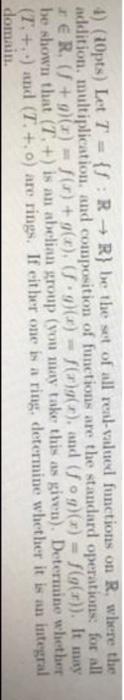 4) (10pts) Let T = {f : R → R} be the set of all real-valued functions on R, where the
addition, multiplication, and composition of functions are the standard operations: for all
x ∈ R, (f + g)(x) = f(x) + g(x), (f · g)(x) = f(x)g(x), and (f ∘ g)(x) = f(g(x)). It may
be shown that (T, +) is an abelian group (you may take this as given). Determine whether
(T, +, ·) and (T, +, ∘) are rings. If either one is a ring, determine whether it is an integral
domain.